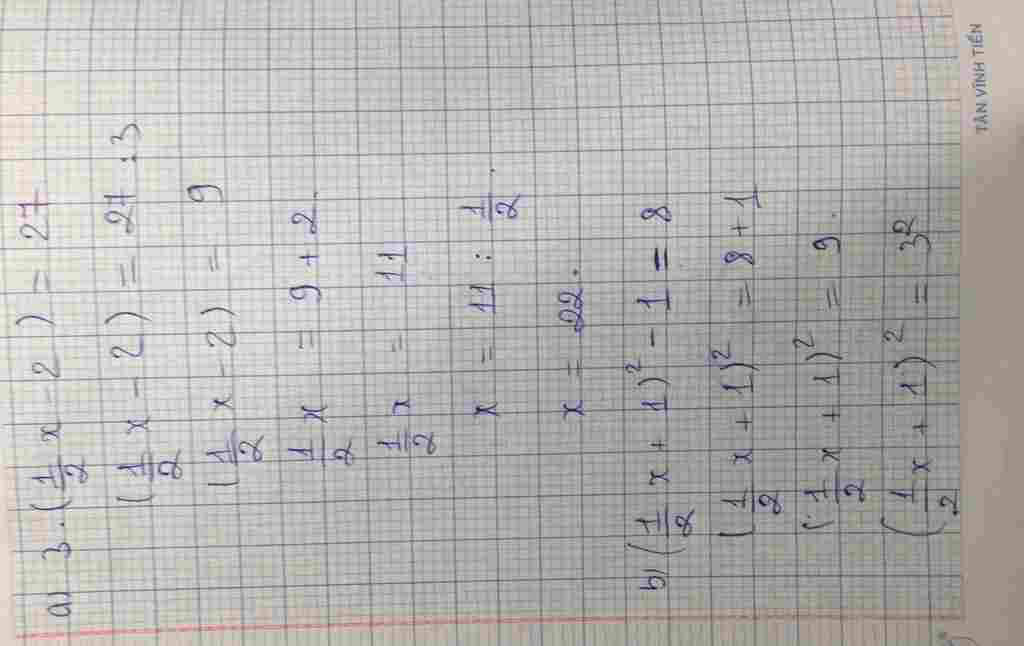 a) 3 . (1/2 x - 2) = 27
(1/2 x - 2) = 27 : 3
(1/2 x - 2) = 9
1/2 x = 9 + 2
1/2 x = 11
x = 11 : 1/2
x = 22.
b) (1/2 x + 1)² - 1 = 8
(1/2 x + 1)² = 8 + 1
(1/2 x + 1)² = 9.
(1/2 x + 1)² = 3²
TÂN VĨNH TIẾN